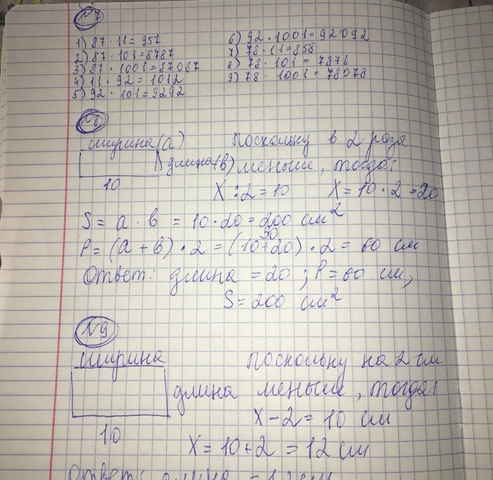 №7
1) 87 · 11 = 957
2) 87 · 101 = 8787
3) 87 · 1001 = 87087
4) 11 · 92 = 1012
5) 92 · 101 = 9292
6) 92 · 1001 = 92092
7) 78 · 11 = 858
8) 78 · 101 = 7878
9) 78 · 1001 = 78078
№8
ширина (а) Поскольку в 2 раза
длина (в) меньше, тогда:
10 X : 2 = 10 X = 10 · 2 = 20
S = а · в = 10 · 20 = 200 см²
30
P = (а + в) · 2 = (10 + 20) · 2 = 60 см
Ответ: длина = 20; P = 60 см,
S = 200 см²
№9
ширина поскольку на 2 см
длина меньше, тогда:
X - 2 = 10 см
10
X = 10 + 2 = 12 см
Ответ: длина = 12 см